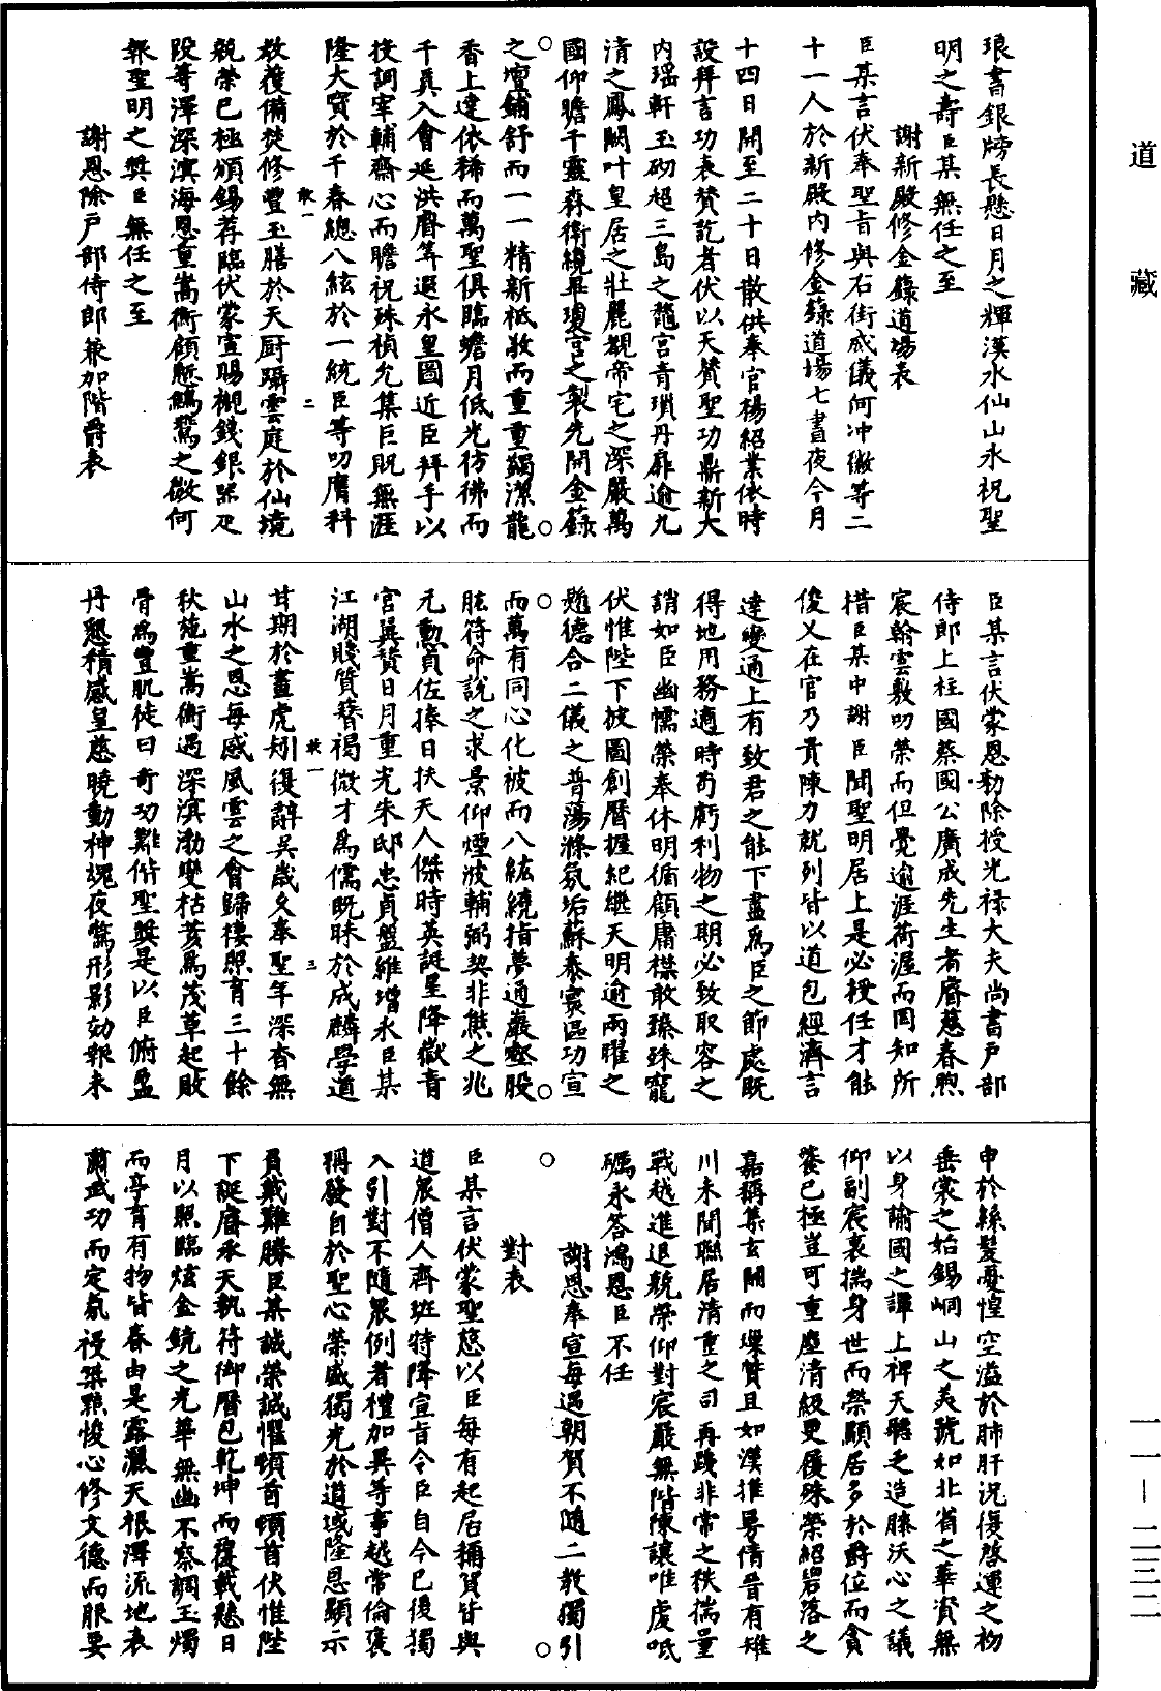 道藏
琅書銀牓長懸日月之輝漢水仙山永祝聖
明之壽臣某無任之至
謝新殿修金籙道場表
臣某言伏奉聖旨與石街威儀何冲徽等二
十一人於新殿內修金籙道場七晝夜今月
十四日開至二十日散供奉官楊紹業依時
設拜言功表贊訖者伏以天贊聖功鼎新大
內瑶軒玉砌超三島之鼇宮青瑣丹扉逾九
清之鳳闕叶皇居之壯麗觀帝宅之深嚴萬
國仰瞻千靈森衛繞畢瓊宮之製先開金籙
之壇鋪舒而一一精新祗敬而重重蠲潔龍
香上達依稀而萬聖俱臨蟾月低光彷彿而
千真入會延洪曆筭遐永皇圖近臣拜手以
授詞宰輔齋心而瞻祝殊禎允集巨貺無涯
隆大寶於千春總八紘於一統臣等叨膺科
敎一
二
教獲備焚修豐玉膳於天厨躡雲庭於仙境
兢榮已極頒錫荐臨伏蒙宣賜襯錢銀器疋
段等澤深溟海恩重嵩衡顧慙鱗鶩之微何
報聖明之獎臣無任之至
謝恩除戶部侍郎兼加階爵表
臣某言伏蒙恩勑除授光禄大夫尚書戶部
侍郎上柱國蔡國公廣成先生者睿慈春煦
宸翰雲敷叨榮而但覺逾涯荷渥而罔知所
措臣某中謝臣聞聖明居上是必授任才能
俊乂在官乃貴陳力就列皆以道包經濟言
達變通上有致君之能下盡爲臣之節處既
得地用務適時苟虧利物之期必致取容之
誚如臣幽懦榮奉休明循顧庸襟敢臻殊寵
伏惟陛下披圖創曆握紀繼天明逾兩曜之
懸德合二儀之普蕩滌氛垢蘇泰寰區功宣
而萬有同心化被而八紘繞指夢通巖壑股
肱符命說之求景仰煙波輔弼契非熊之兆
元勳貞佐捧日扶天人傑時英誕星降嶽青
宮巽賛日月重光朱邸忠貞盤維增永臣某
江湖賤質簮褐微才爲儒既昧於成麟學道
敎一
三
甘期於畫虎矧復辭吳歲久奉聖年深杳無
山水之思每感風雲之會歸棲照育三十餘
秋施重嵩衡遇深溟渤變枯荄爲茂草起敗
骨爲豐肌徒曰奇功難偕聖獎是以臣俯盈
丹懇積感皇慈曉動神魂夜驚形影効報未
申於絲髮憂惶空溢於肺肝況復啓運之初
垂裳之始錫峒山之美號如北省之華資無
以身諭國之譚上裨天聽乏造膝沃心之議
仰副宸衷揣身世而榮顯居多於爵位而貪
饕已極豈可重塵清級更履殊榮紹碧落之
嘉稱集玄關而璅賛且如漢推曼倩晉有雉
川未聞聯居清重之司再踐非常之秩揣量
戰越進退兢榮仰對宸嚴無階陳讓唯虔吸
礪永答鴻恩臣不任
謝恩奉宣每遇朝賀不隨二教獨引
對表
臣某言伏蒙聖慈以臣每有起居稱賀皆與
道衆僧人齊班特降宣旨令臣自今已後獨
入引對不隨衆例者禮加異等事越常倫褒
稱發自於聖心榮盛獨光於道域隆恩顯示
負戴難勝臣某誠榮誠懼頓首頓首伏惟陛
下誕睿承天執符御曆包乾坤而覆載懸日
月以照臨炫金鏡之光華無幽不察調玉燭
而亭育有物皆春由是露灑天根澤流地表
肅武功而定氛祲桀黠悛心修文德而服要
一一—二三二